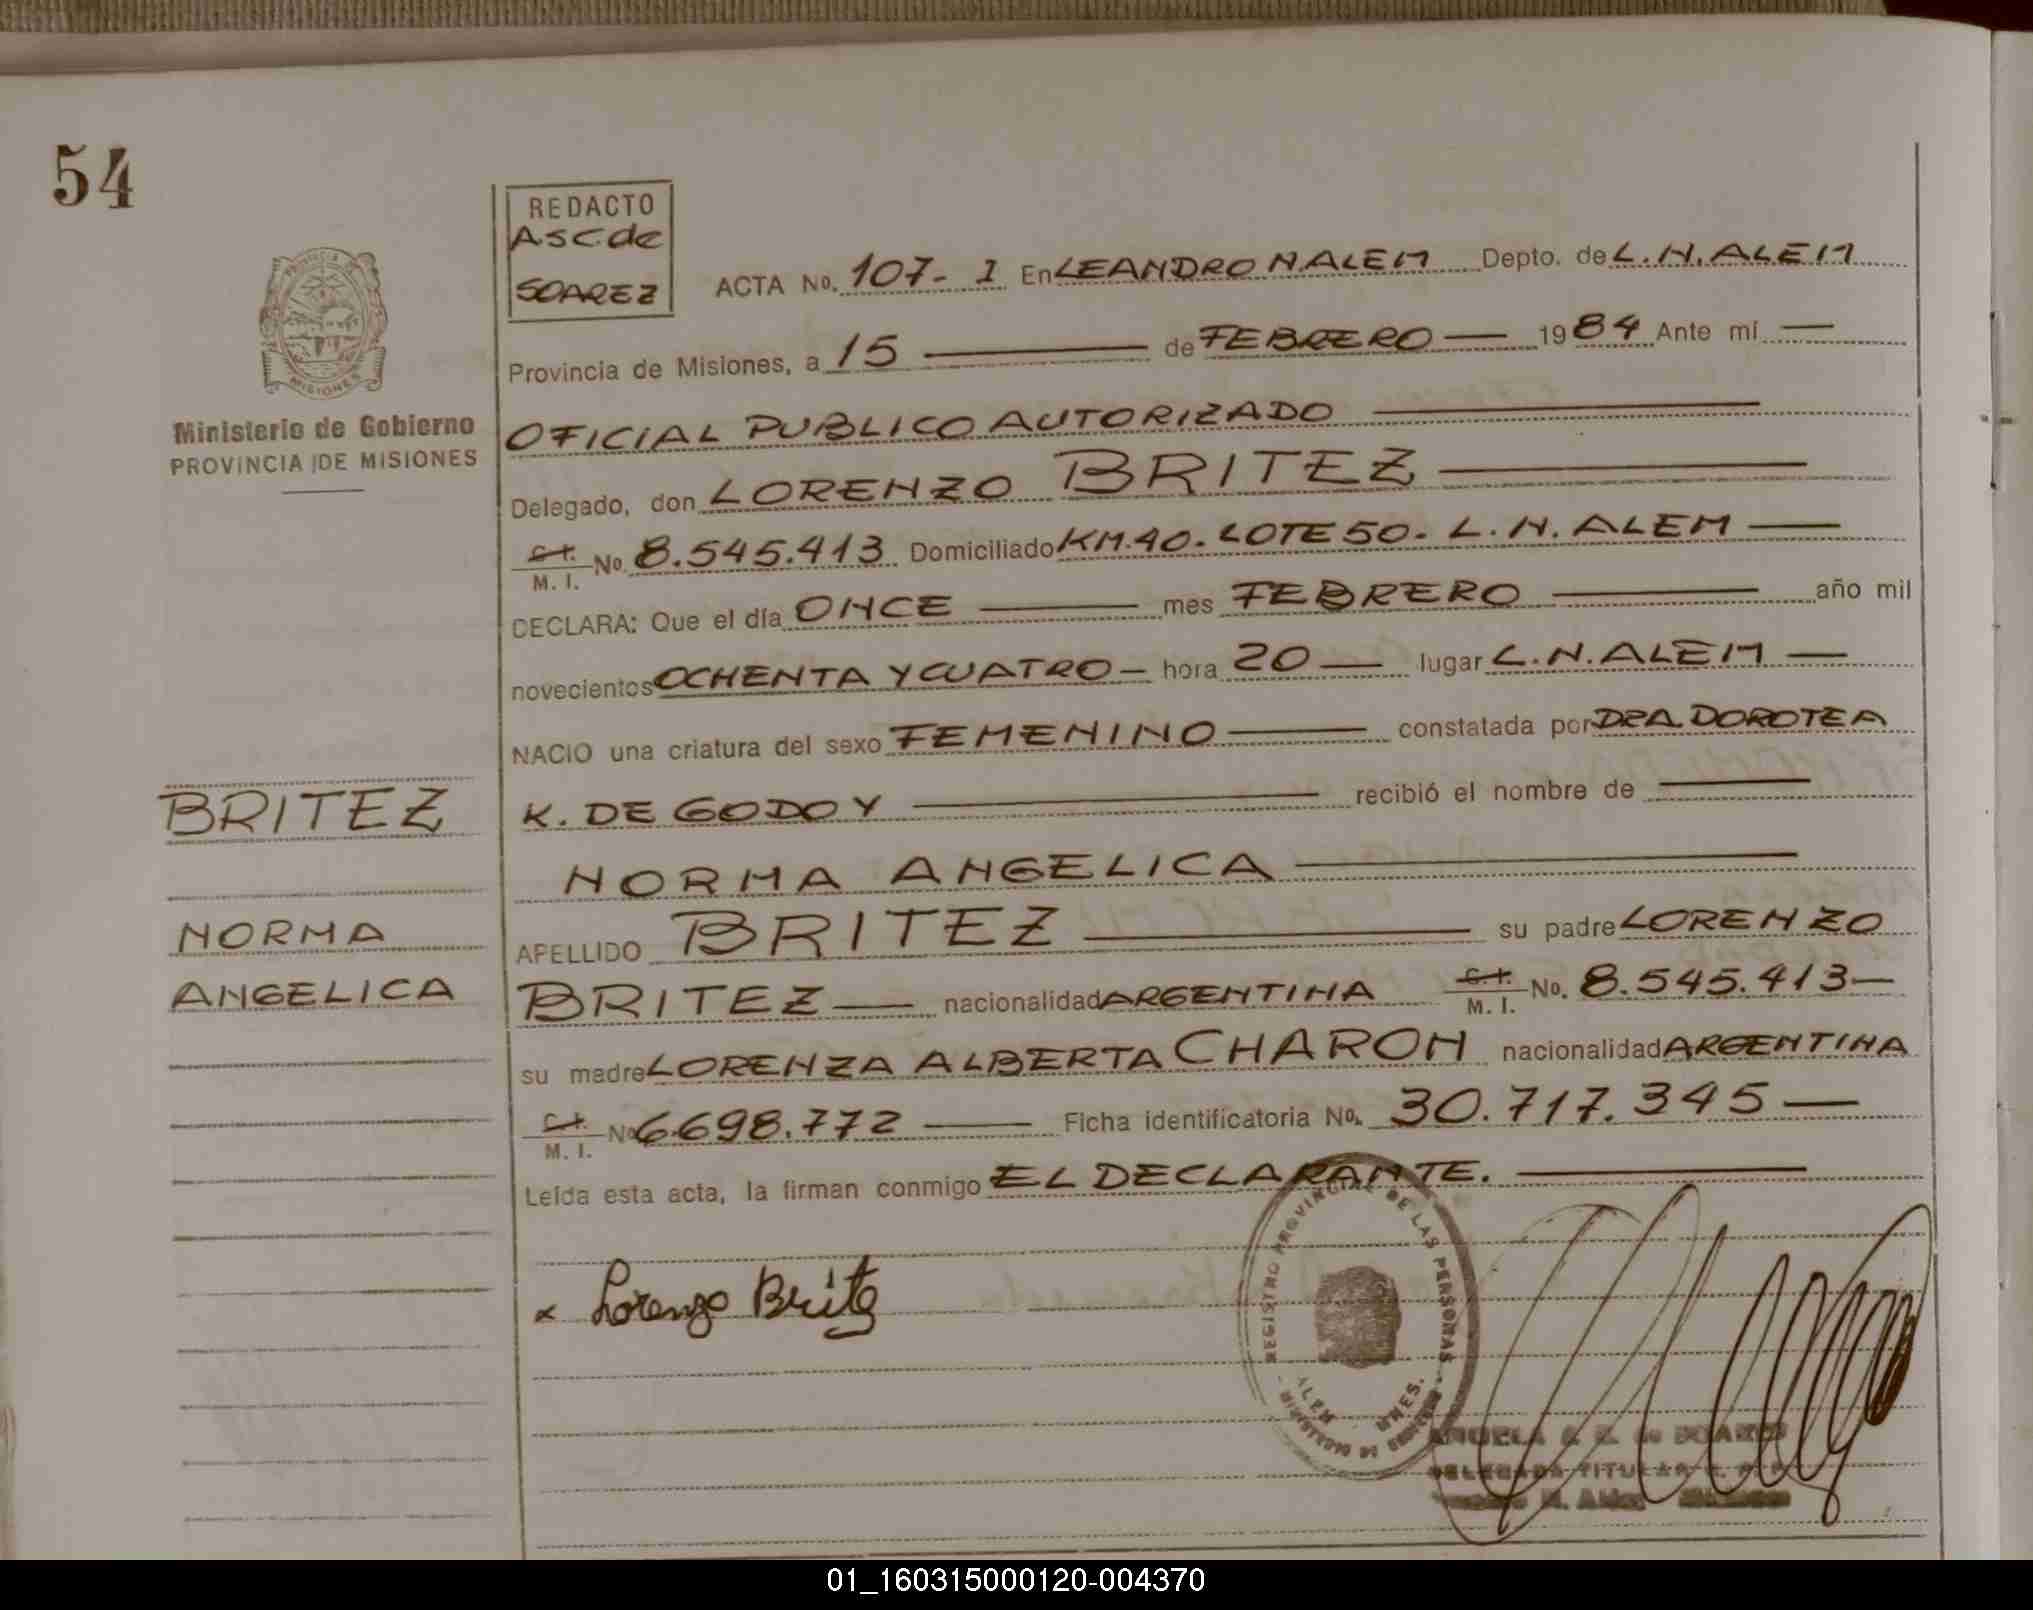 54
REDACTO
A.S.C. de
SOAREZ
PROVINCIA DE
MISIONES
Ministerio de Gobierno
PROVINCIA DE MISIONES
ACTA No. 107- I En LEANDRO N ALEM Depto. de L.N. ALEM
Provincia de Misiones, a 15 de FEBRERO 1984 Ante mí
OFICIAL PUBLICO AUTORIZADO
Delegado, don LORENZO BRITEZ
C. I. M. I. No. 8.545.413 Domiciliado KM.40. LOTE 50. L. N. ALEM
DECLARA: Que el día ONCE mes FEBRERO año mil
novecientos OCHENTA Y CUATRO hora 20 lugar L.N. ALEM
NACIO una criatura del sexo FEMENINO constatada por DRA. DOROTEA
K. DE GODOY recibió el nombre de
NORMA ANGELICA
APELLIDO BRITEZ su padre LORENZO
BRITEZ nacionalidad ARGENTINA C. I. M. I. No. 8.545.413
su madre LORENZA ALBERTA CHARON nacionalidad ARGENTINA
C. I. M. I. No 6.698.772 Ficha identificatoria No. 30.717.345
Leída esta acta, la firman conmigo EL DECLARANTE.
BRITEZ
NORMA
ANGELICA
x Lorenzo Britez
REGISTRO PROVINCIAL DE LAS PERSONAS
ALEM MNES.
MINISTERIO DE GOBIERNO
ANGELA S. C. de SOAREZ
DELEGADA TITULAR R. P. P.
Leandro N. Alem - Misiones
01_160315000120-004370